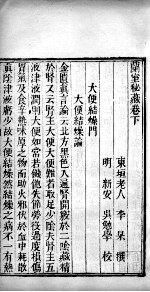 蘭室秘藏卷下
東垣老人 李杲 撰
明 新安 吳勉學 校
大便結燥門
大便結燥論
金匱眞言論云北方黑色入通腎開竅於二陰藏精
於腎又云腎主大便大便難者取足少陰夫腎主五
液津液潤則大便如常若饑飽失節勞役過度損傷
胃氣及食辛熱味厚之物而助火邪伏於血中耗散
眞陰津液虧少故大便結燥然結燥之病不一有熱